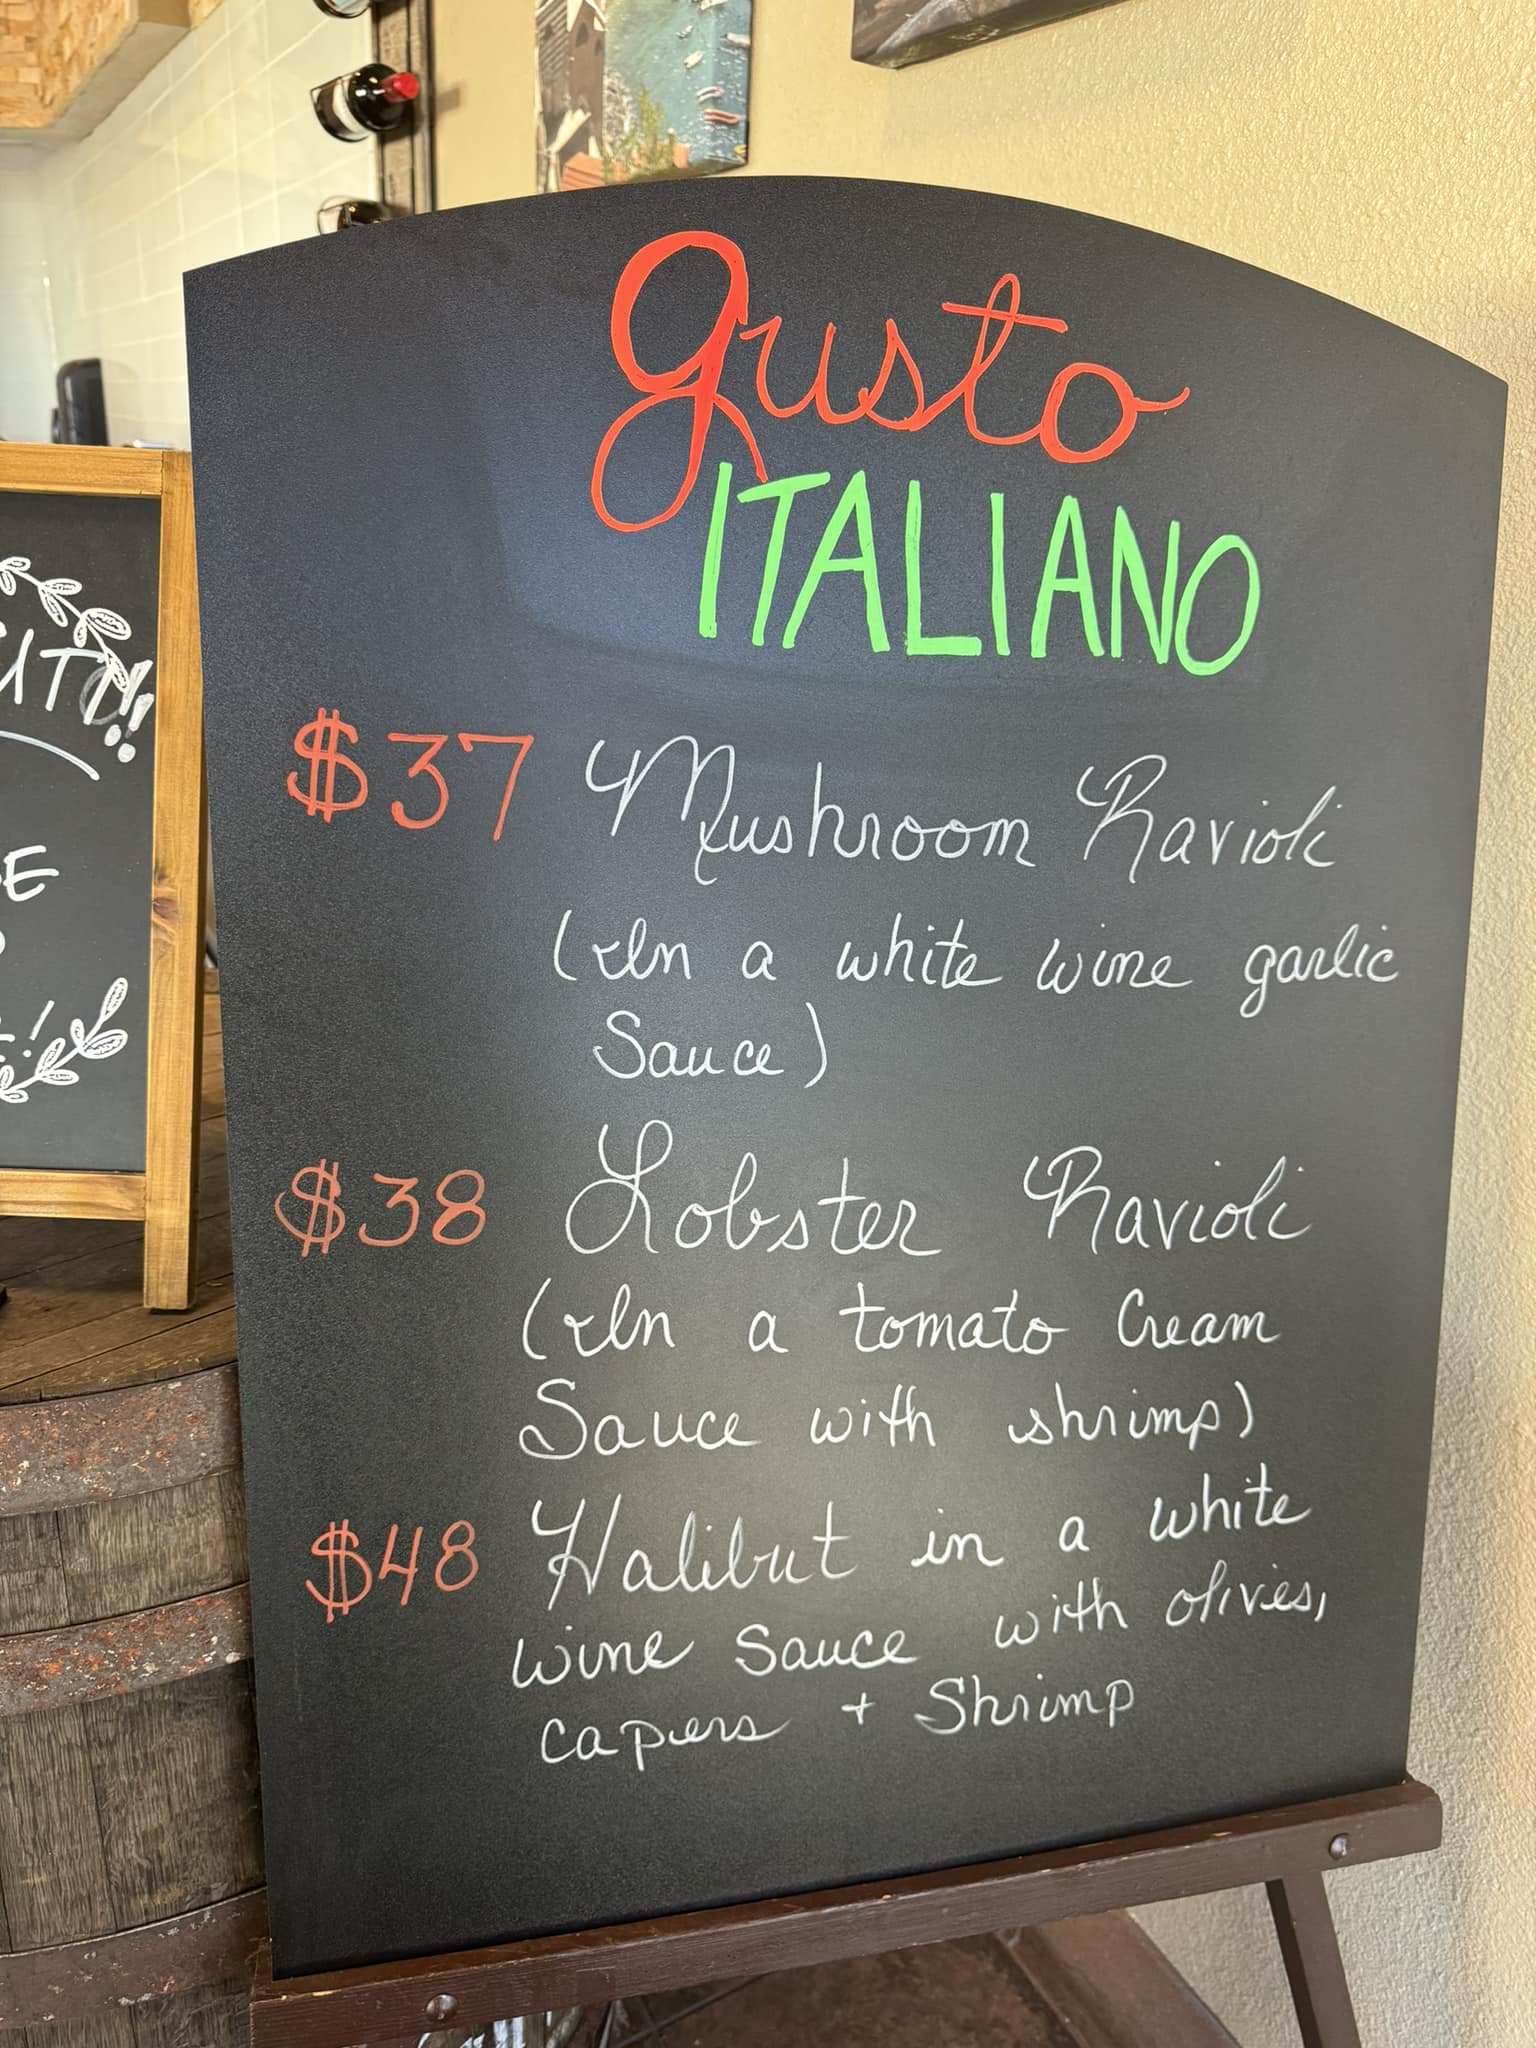 gusto
ITALIANO
$37 Mushroom Ravioli
(In a white wine garlic
Sauce)
$38 Lobster Ravioli
(In a tomato Cream
Sauce with shrimp)
$48 Halibut in a white
wine Sauce with olives,
capers + Shrimp